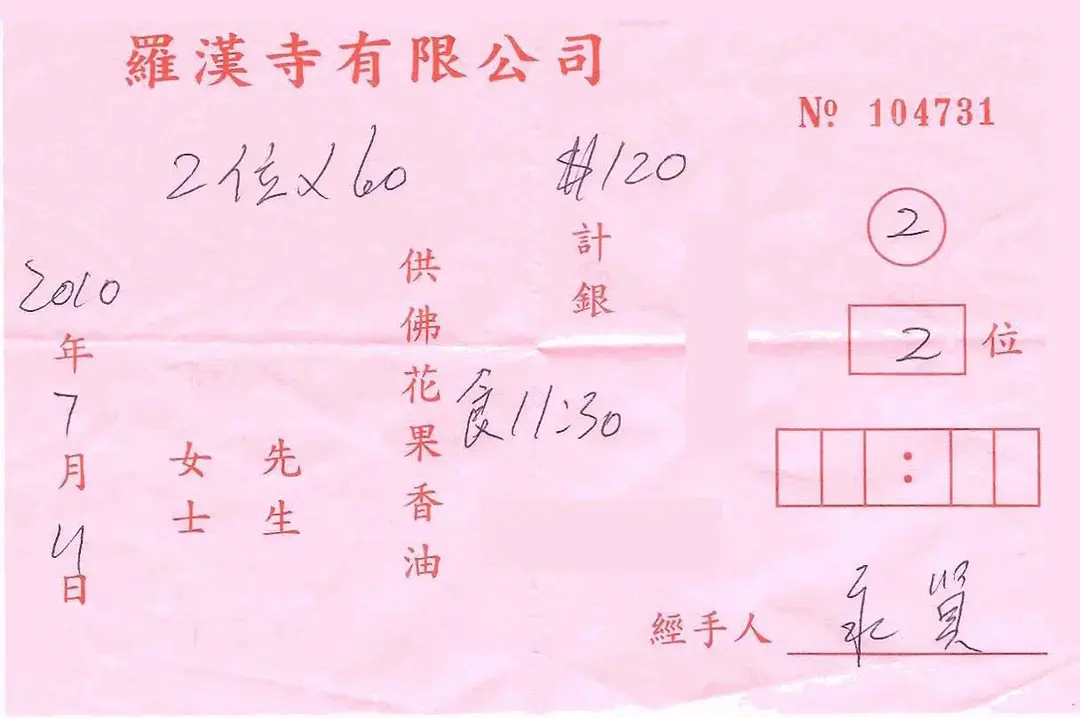 羅漢寺有限公司
Nº 104731
2位×60 $120
計銀
供佛花果香油
食11:30
先生
女士
2010年7月4日
2
2位
:
經手人